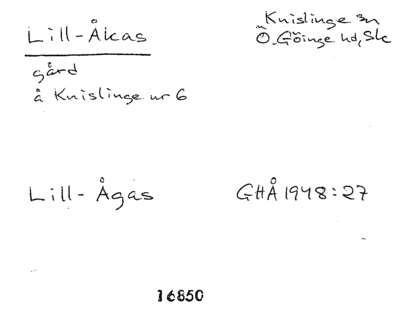 Lill-Åkas
Knislinge sn
Ö. Göinge hd, Sk
gård
å Knislinge nr 6
Lill-Ågas
GHÅ 1948:27
16850